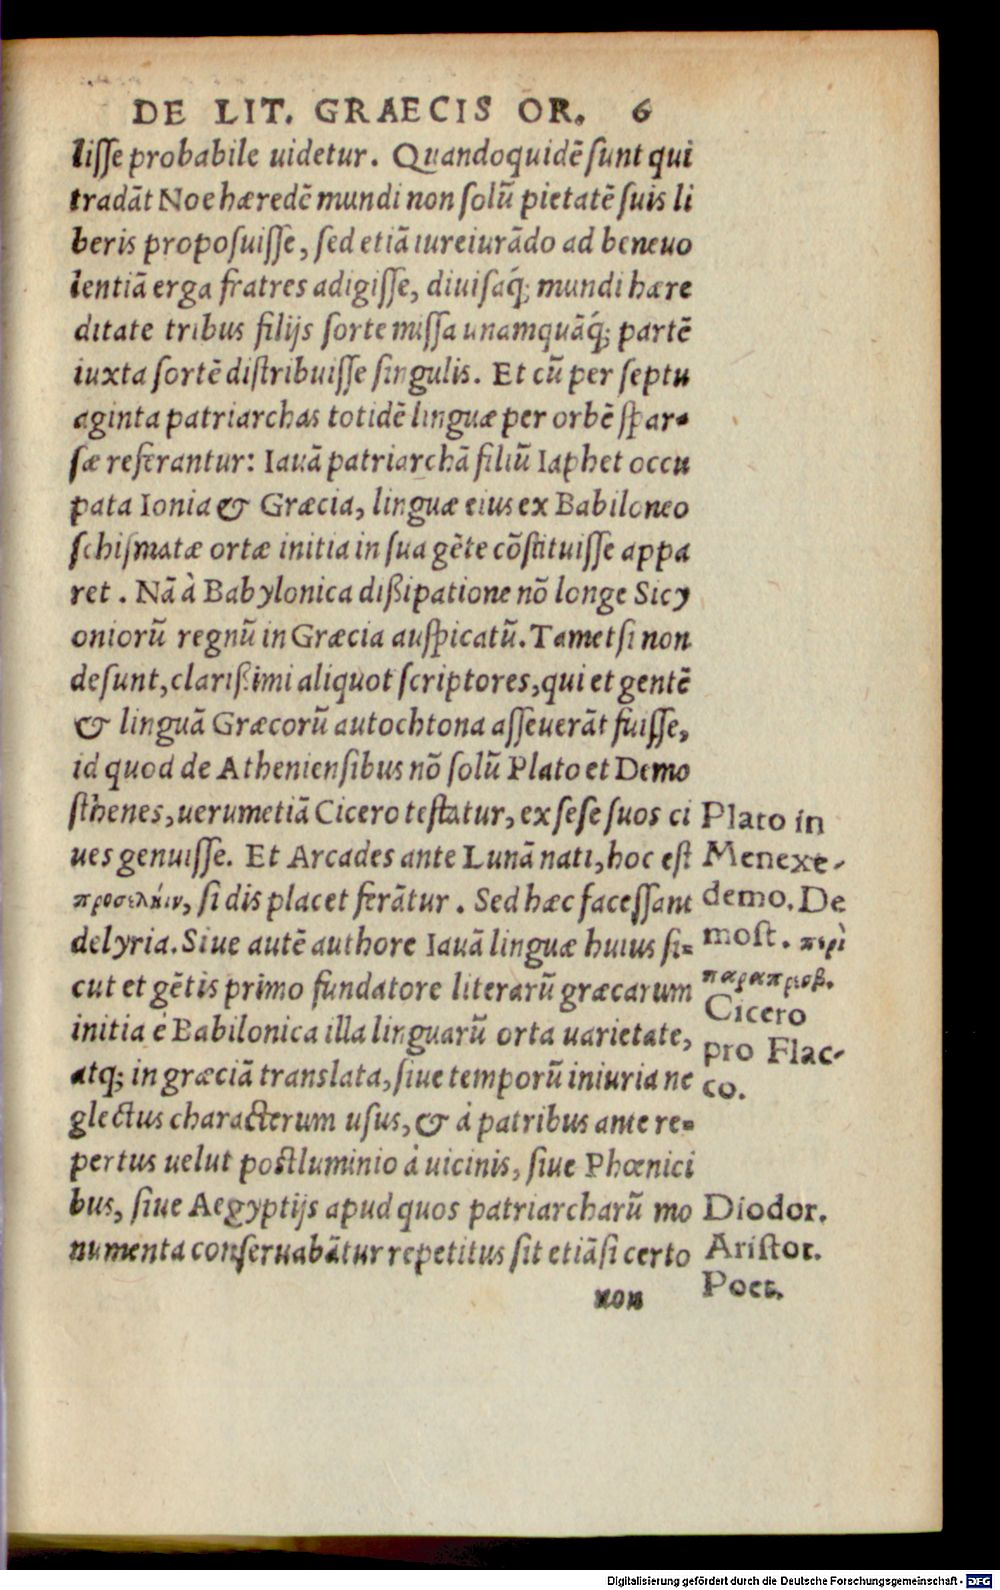 DE LIT. GRAECIS OR. 6
lisse probabile uidetur. Quandoquidē sunt qui
tradāt Noe hæredē mundi non solū pietatē suis li
beris proposuisse, sed etiā iureiurādo ad beneuo
lentiā erga fratres adigisse, diuisaq́; mundi hære
ditate tribus filijs sorte missa unamquāq́; partē
iuxta sortē distribuisse singulis. Et cū per septu
aginta patriarchas totidē linguæ per orbē spar-
sæ referantur: Iauā patriarchā filiū Iaphet occu
pata Ionia & Græcia, linguæ eius ex Babiloneo
schismatæ ortæ initia in sua gēte cōstituisse appa
ret. Nā à Babylonica dißipatione nō longe Sicy
oniorū regnū in Græcia auspicatū. Tametsi non
desunt, clarißimi aliquot scriptores, qui et gentē
& linguā Græcorū autochtona asseuerāt fuisse,
id quod de Atheniensibus nō solū Plato et Demo
sthenes, uerumetiā Cicero testatur, ex sese suos ci
ues genuisse. Et Arcades ante Lunā nati, hoc est
, si dis placet ferātur. Sed hæc facessant
delyria. Siue autē authore Iauā linguæ huius si-
cut et gētis primo fundatore literarū græcarum
initia è Babilonica illa linguarū orta uarietate,
atq; in græciā translata, siue temporū iniuria ne
glectus characterum usus, & à patribus ante re-
pertus uelut postluminio à uicinis, siue Phœnici
bus, siue Aegyptijs apud quos patriarcharū mo
numenta conseruabātur repetitus sit etiāsi certo
non
Plato in
Menexe-
demo. De
most. περὶ
παραπρεσβ.
Cicero
pro Flac-
co.
Diodor.
Aristot.
Poet.
Digitalisierung gefördert durch die Deutsche Forschungsgemeinschaft - DFG